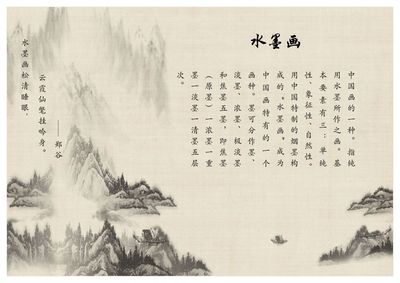 水墨画
中国画的一种。指纯
用水墨所作之画。基
本要素有三：单纯
性、象征性、自然性。
用中国特制的烟墨构
成的“水墨画”，成为
中国画特有的一个
画种。墨可分作墨、
淡墨、浓墨、极淡墨
和焦墨五墨，即焦墨
（原墨）一浓墨一重
墨一淡墨一清墨五层
次。
水墨画松清睡眼
云霞仙氅挂吟身。
——郑谷